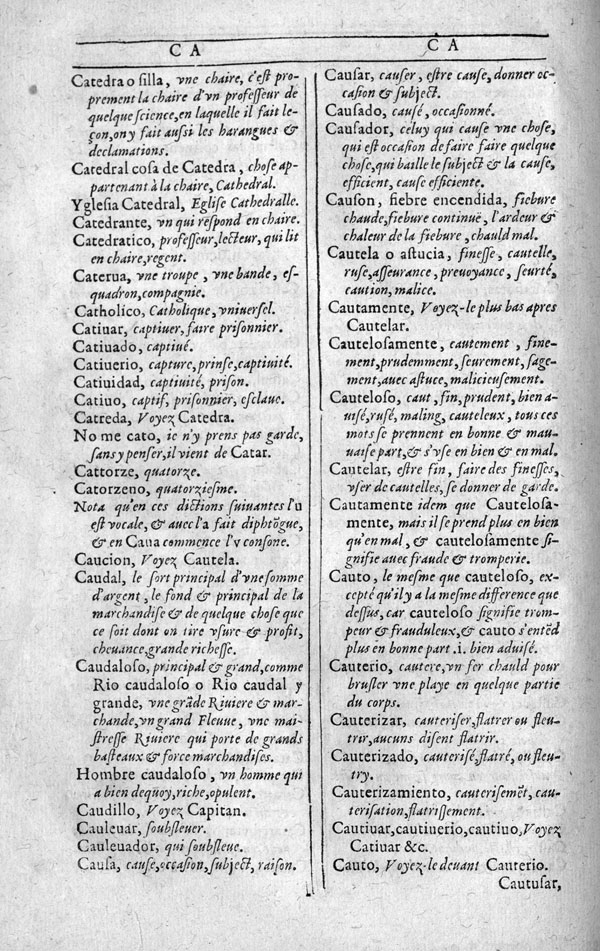 C A
Catedra o silla, vne chaire, c'est pro-
prement la chaire d'vn professeur de
quelque science, en laquelle il fait le-
çon, on y fait aussi les harangues &
declamations.
Catedral cosa de Catedra, chose ap-
partenant à la chaire, Cathedral.
Yglesia Catedral, Eglise Cathedralle.
Catedrante, vn qui respond en chaire.
Catedratico, professeur, lecteur, qui lit
en chaire, regent.
Caterua, vne troupe, vne bande, es-
quadron, compagnie.
Catholico, Catholique, vniuersel.
Catiuar, captiuer, faire prisonnier.
Catiuado, captiué.
Catiuerio, capture, prinse, captiuité.
Catiuidad, captiuité, prison.
Catiuo, captif, prisonnier, esclaue.
Catreda, Voyez Catedra.
No me cato, ie n'y prens pas garde,
sans y penser, il vient de Catar.
Cattorze, quatorze.
Catorzeno, quatorziesme.
Nota qu'en ces dictions suiuantes l'u
est vocale, & auec l'a fait diphtōgue,
& en Caua commence l'v consone.
Caucion, Voyez Cautela.
Caudal, le sort principal d'vne somme
d'argent, le fond & principal de la
marchandise & de quelque chose que
ce soit dont on tire vsure & profit,
cheuance, grande richesse.
Caudaloso, principal & grand, comme
Rio caudaloso o Rio caudal y
grande, vne grāde Riuiere & mar-
chande, vn grand Fleuue, vne mai-
stresse Riuiere qui porte de grands
basteaux & force marchandises.
Hombre caudaloso, vn homme qui
a bien dequoy, riche, opulent.
Caudillo, Voyez Capitan.
Cauleuar, soubsleuer.
Cauleuador, qui soubsleue.
Causa, cause, occasion, subject, raison.
C A
Causar, causer, estre cause, donner oc-
casion & subject.
Causado, causé, occasionné.
Causador, celuy qui cause vne chose,
qui est occasion de faire faire quelque
chose, qui baille le subject & la cause,
efficient, cause efficiente.
Causon, fiebre encendida, fiebure
chaude, fiebure continuë, l'ardeur &
chaleur de la fiebure, chauld mal.
Cautela o astucia, finesse, cautelle,
ruse, asseurance, preuoyance, seurté,
caution, malice.
Cautamente, Voyez-le plus bas apres
Cautelar.
Cautelosamente, cautement, fine-
ment, prudemment, seurement, sage-
ment, auec astuce, malicieusement.
Cauteloso, caut, fin, prudent, bien a-
uisé, rusé, maling, cauteleux, tous ces
mots se prennent en bonne & mau-
uaise part, & s'vse en bien & en mal.
Cautelar, estre fin, faire des finesses,
vser de cautelles, se donner de garde.
Cautamente idem que Cautelosa-
mente, mais il se prend plus en bien
qu'en mal, & cautelosamente si-
gnifie auec fraude & tromperie.
Cauto, le mesme que cauteloso, ex-
cepté qu'il y a la mesme difference que
dessus, car cauteloso signifie trom-
peur & frauduleux, & cauto s'entēd
plus en bonne part .i. bien aduisé.
Cauterio, cautere, vn fer chauld pour
brusler vne playe en quelque partie
du corps.
Cauterizar, cauteriser, flatrer ou fleu-
trir, aucuns disent flatrir.
Cauterizado, cauterisé, flatré, ou fleu-
try.
Cauterizamiento, cauterisemēt, cau-
terisation, flatrissement.
Cautiuar, cautiuerio, cautiuo, Voyez
Catiuar &c.
Cauto, Voyez-le deuant Cauterio.
Cautusar,